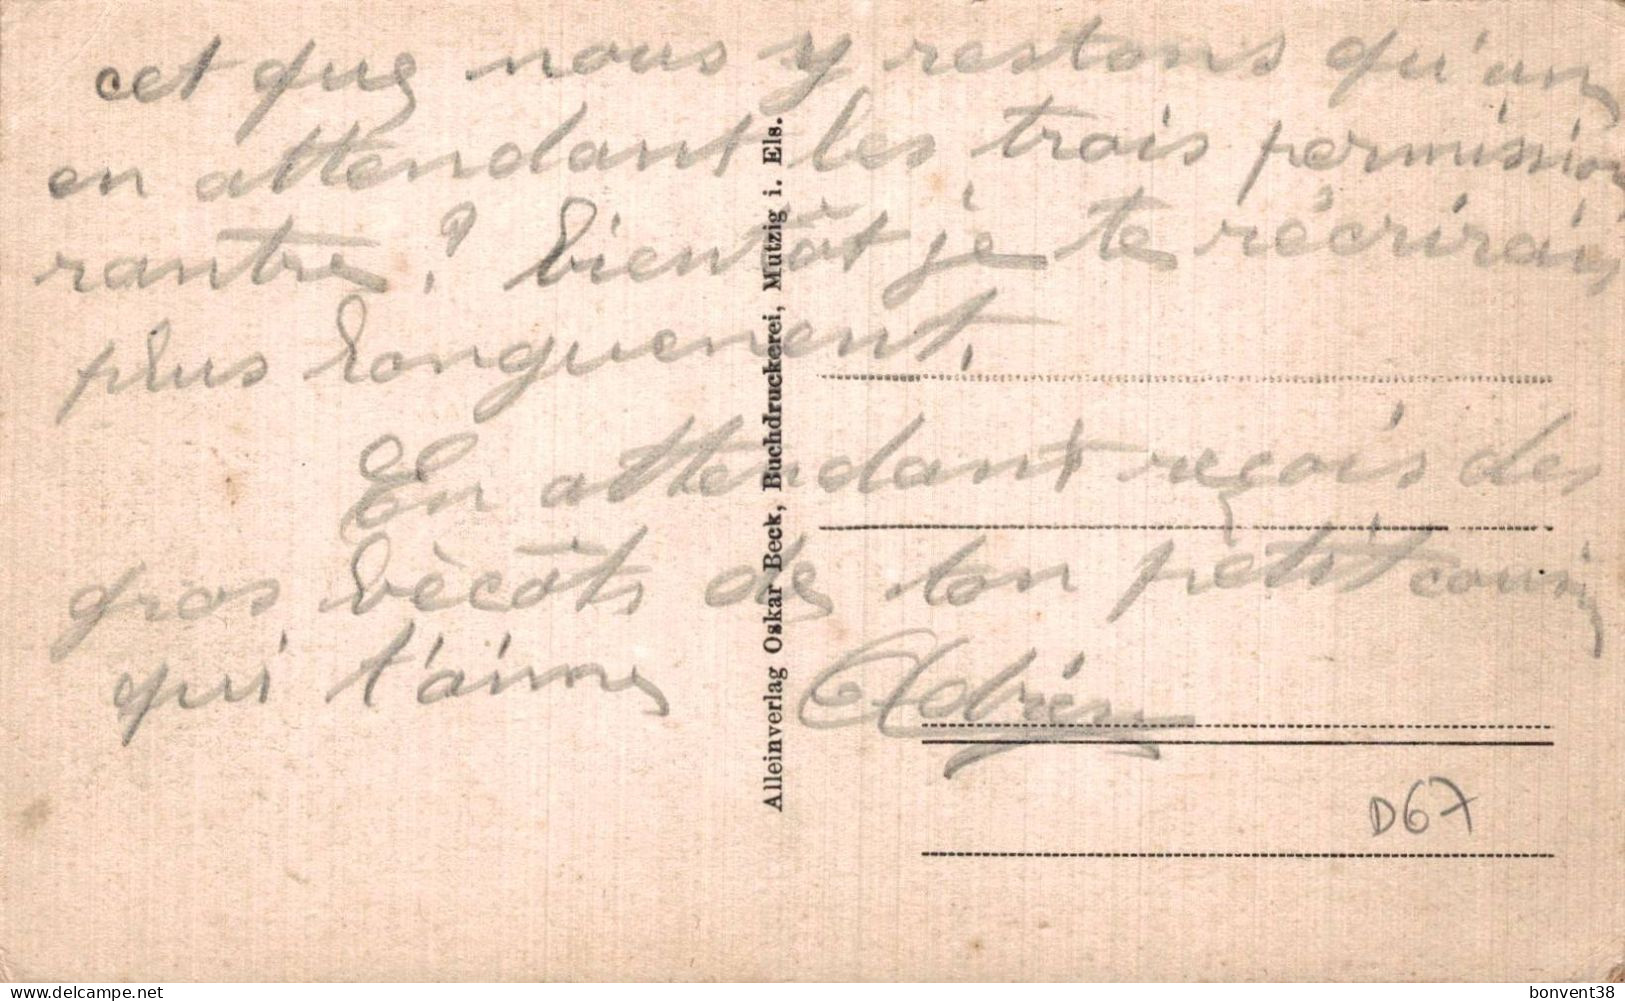 cet que nous y restons qu'un
en attendant les trois permission
rantre? bientôt je te récrirais
plus longuement.
En attendant reçois des
gros bècôts de ton petit cousin
qui t'aime Adrien
Alleinverlag Oskar Beck, Buchdruckerei, Mutzig i. Els.
D67
delcampe.net
bonvent38